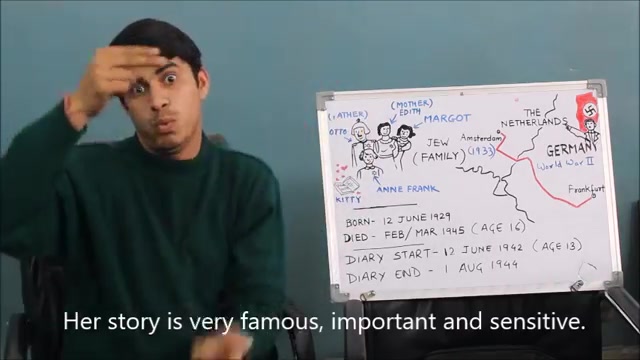 (FATHER)
OTTO
(MOTHER)
EDITH
MARGOT
JEW
(FAMILY)
KITTY
ANNE FRANK
THE
NETHERLANDS
Amsterdam
(1933)
GERMANY
World War II
Frankfurt
BORN- 12 JUNE 1929
DIED - FEB/MAR 1945 (AGE 16)
DIARY START- 12 JUNE 1942 (AGE 13)
DIARY END - 1 AUG 1944
Her story is very famous, important and sensitive.